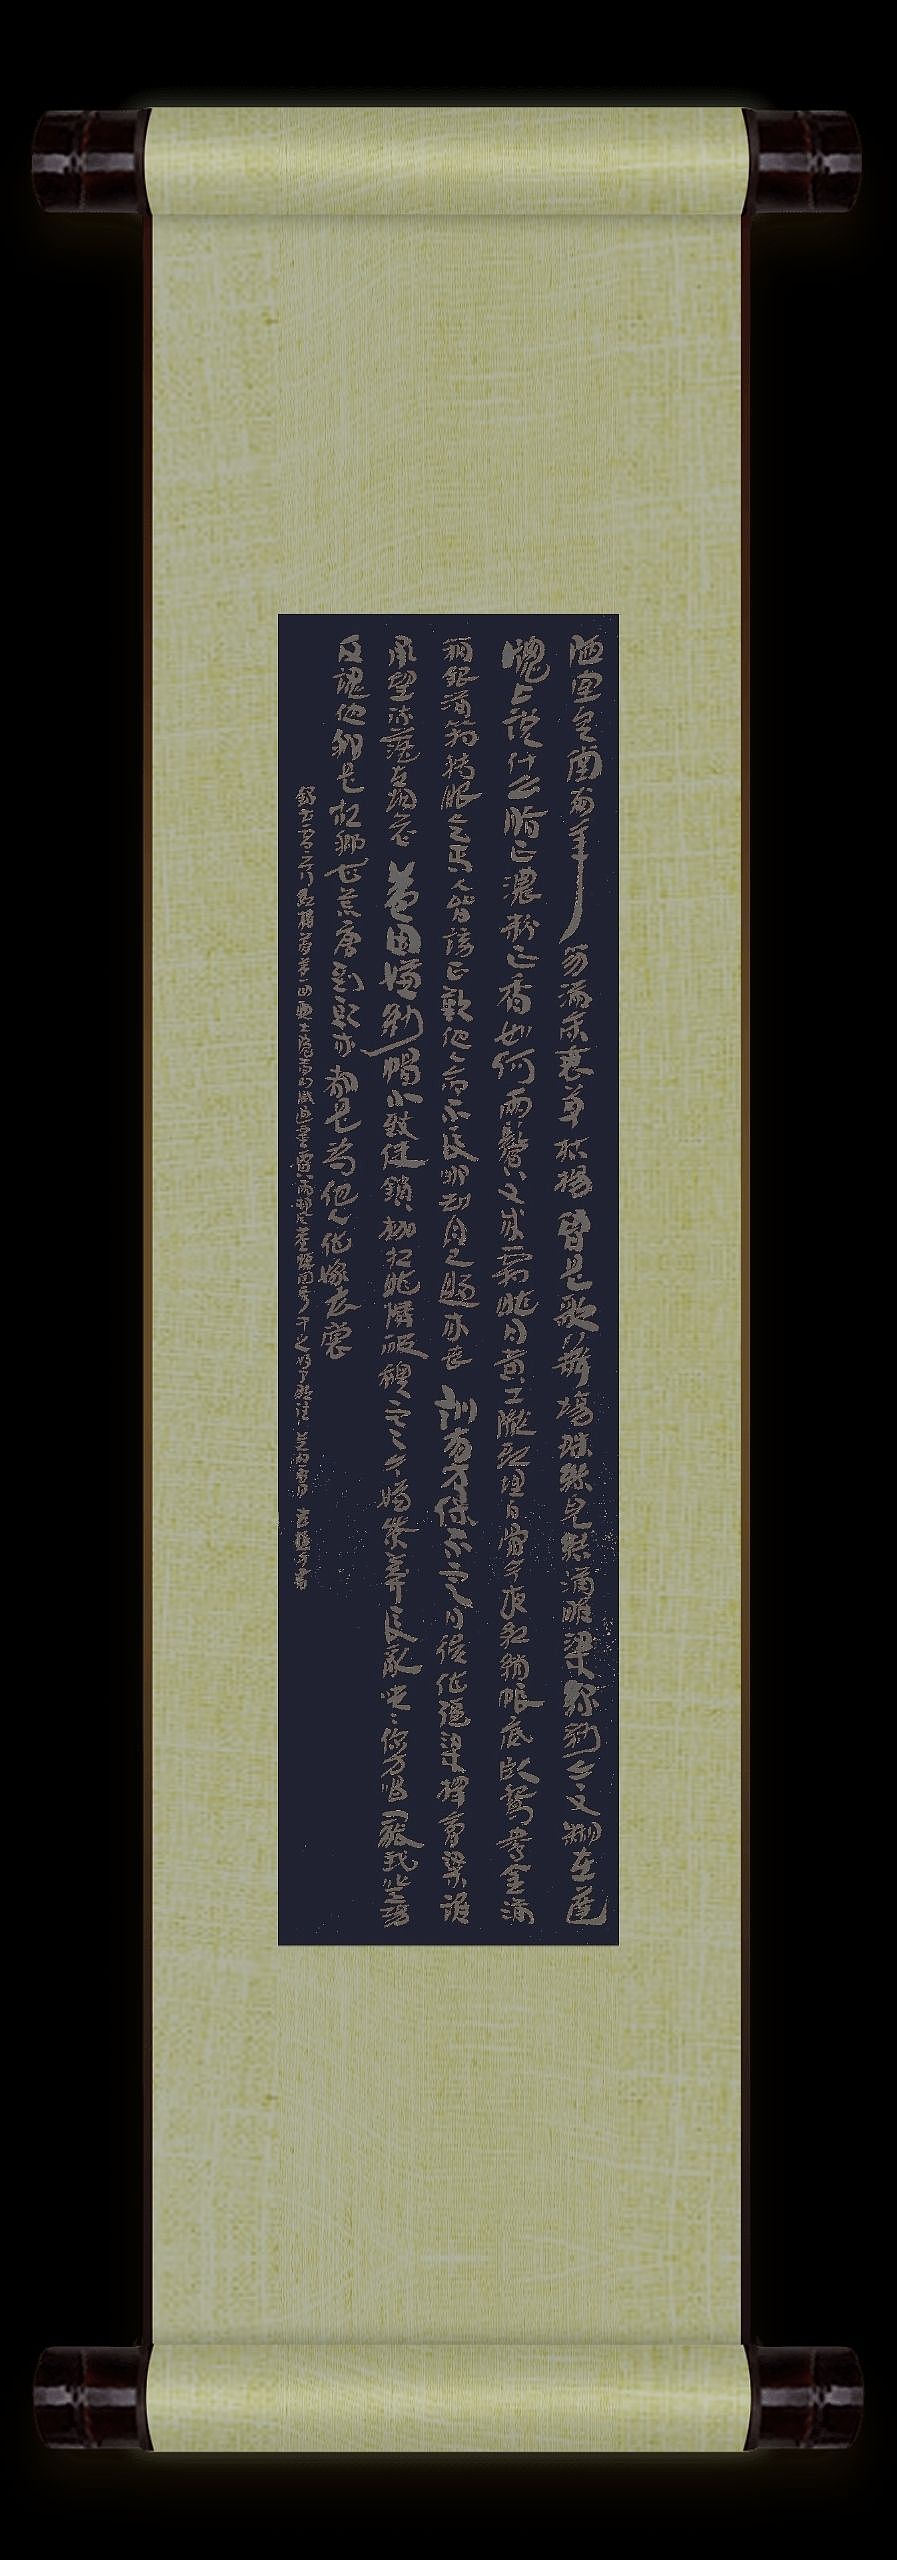 陋室空堂當年笏滿床衰草枯楊曾是歌舞場蛛絲兒結滿雕梁綠紗今又糊在蓬
牕上說什么脂正濃粉正香如何兩鬢又成霜昨日黃土隴頭埋白骨今夜紅綃帳底臥鴛鴦金滿
箱銀滿箱轉眼乞丐人皆謗正歎他人命不長那知自己歸來喪訓有方保不定日後作強梁擇膏粱誰
承望流落在烟花巷因嫌紗帽小致使鎖枷扛昨憐破襖寒今嫌紫蟒長亂哄哄你方唱罷我登場
反認他鄉是故鄉甚荒唐到頭來都是為他人作嫁衣裳
錄曹雪芹紅樓夢第一回甄士隱